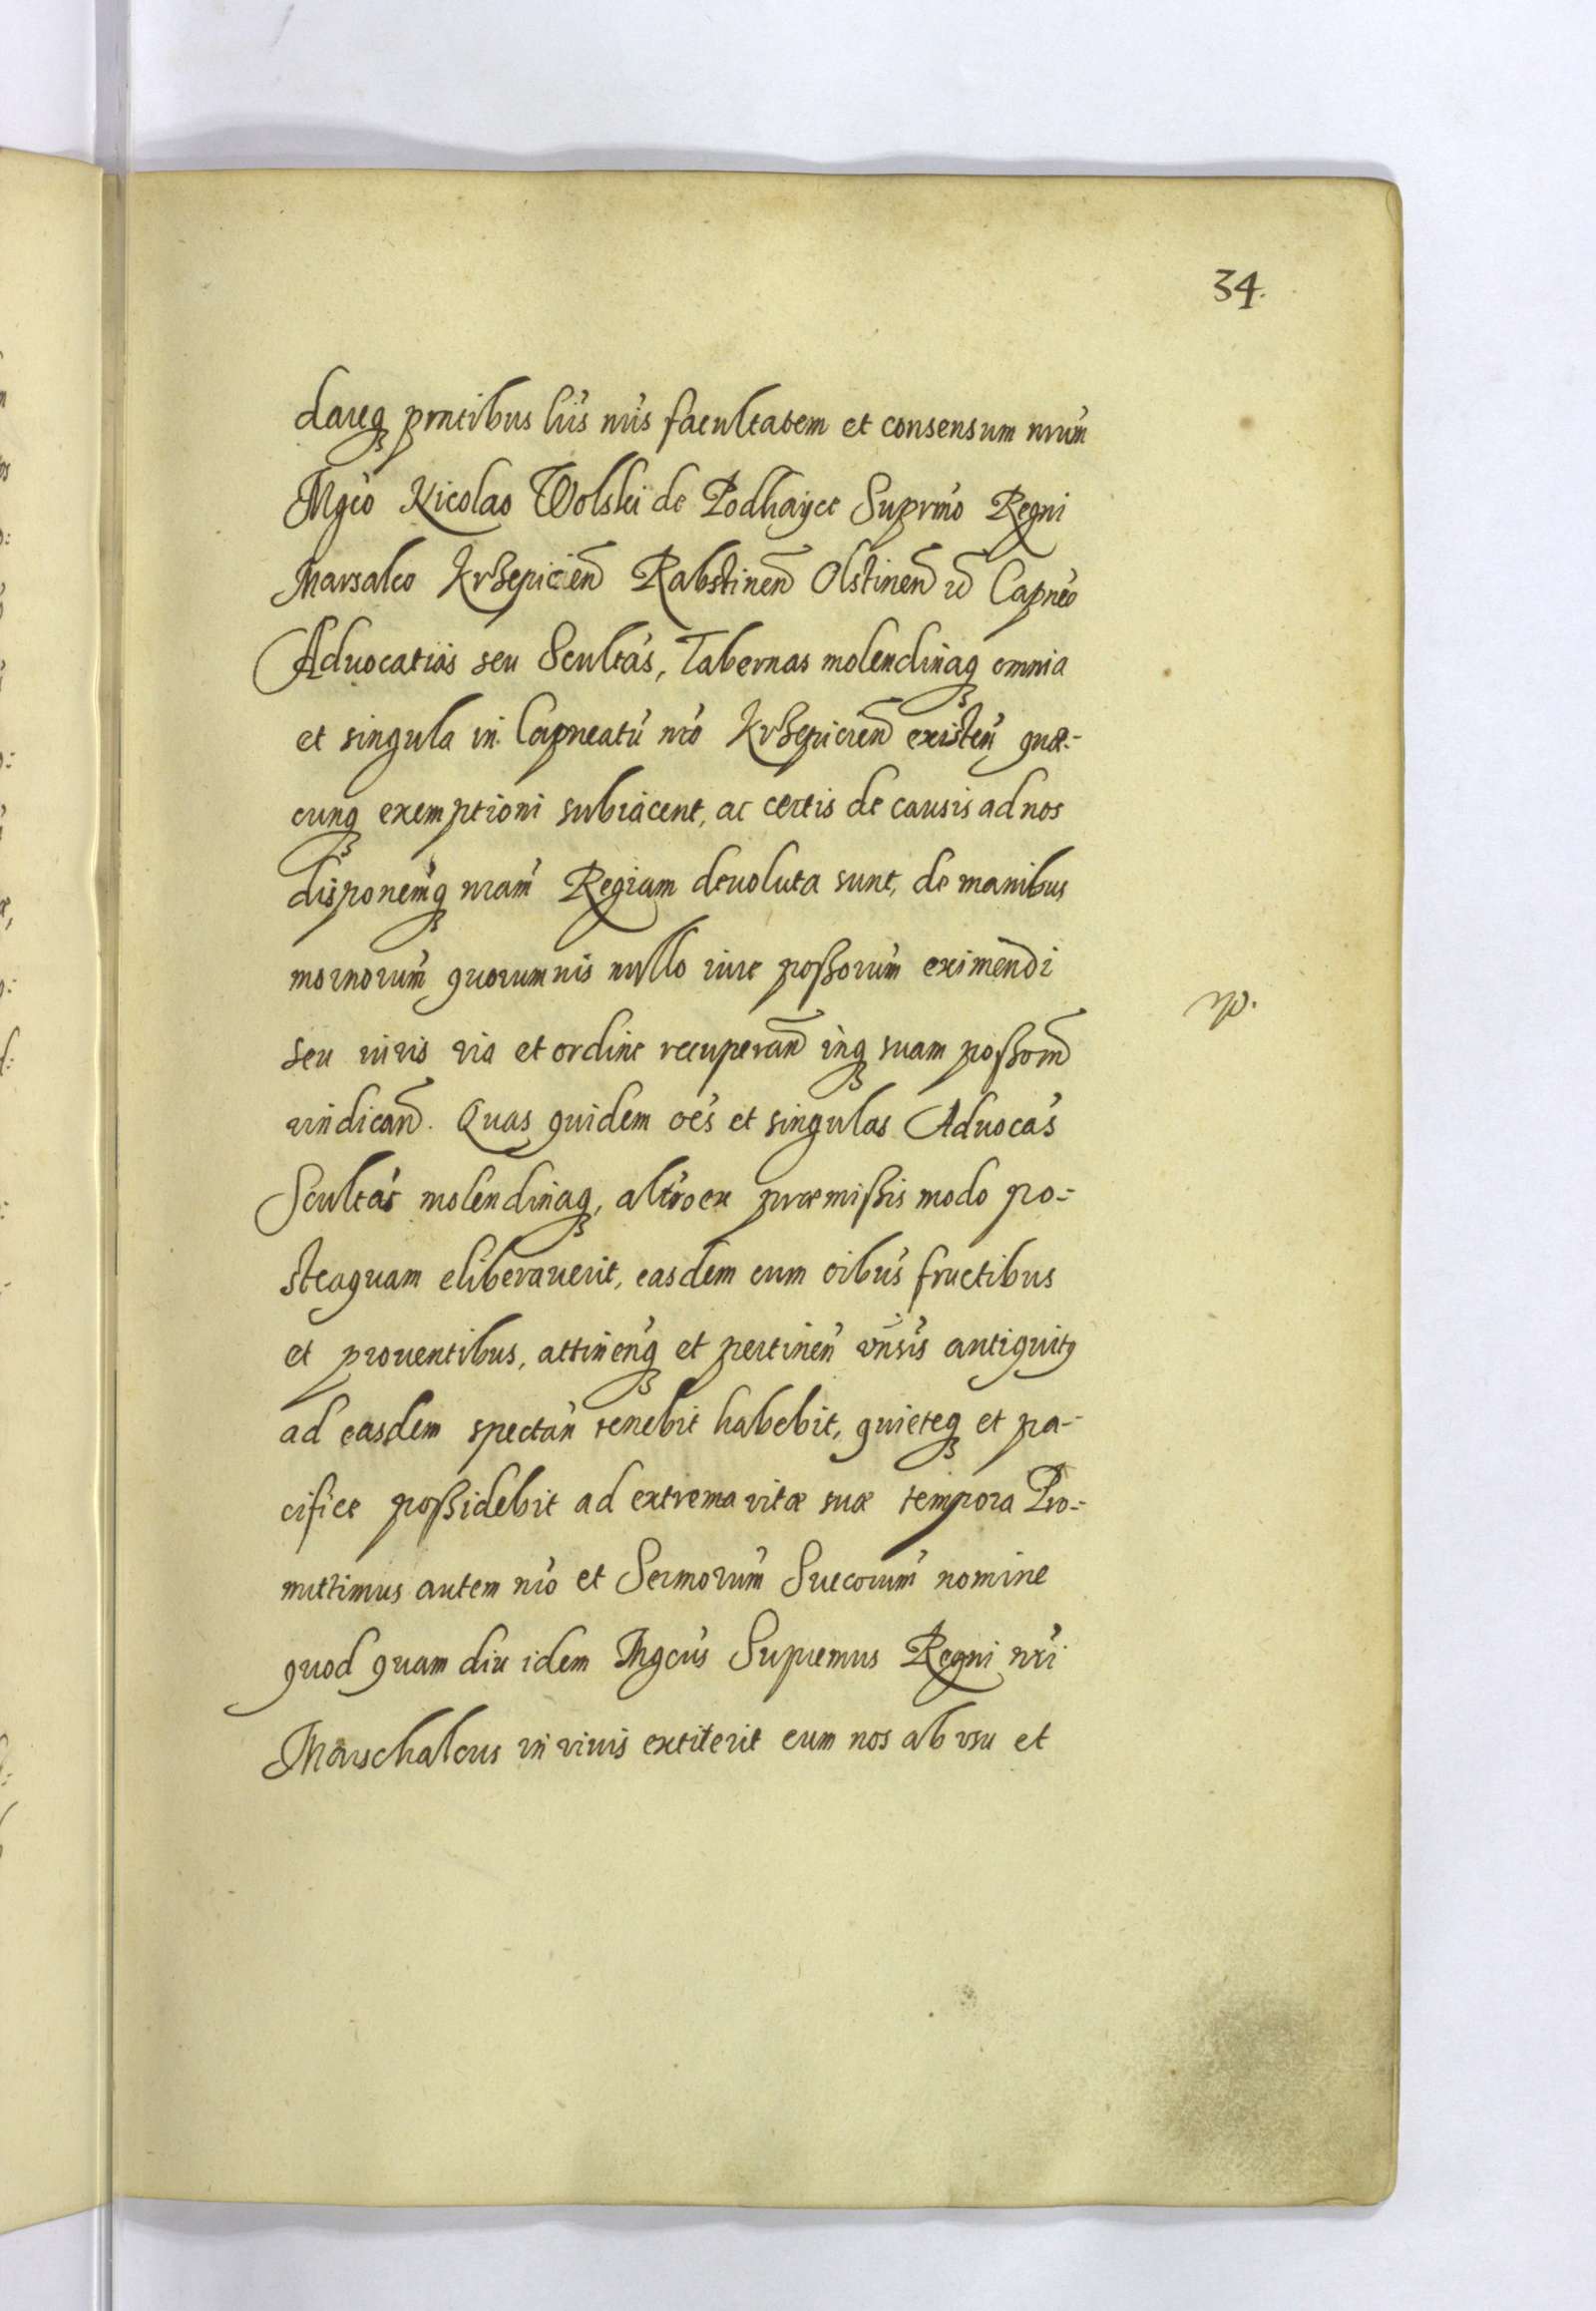 34.
dareq prntibus lris nris facultatem et consensum nrum
Mgco Nicolao Wolski de Podhayce Supremo Regni
Marsalco Krzepicien Rabstinen Olstinen Capneo
Advocatias seu Scultas, Tabernas molendinaq omnia
et singula in Capneatu nro Krzepicien existen quæ-
cunq exemptioni subiacent, ac certis de causis ad nos
disponemq nram Regiam devoluta sunt, de manibus
mornorum quorumuis nullo iure poßorum eximendi
seu iuris via et ordine recuperan inq suam poßom
vindican. Quas quidem oes et singulas Advocas
Scultas molendinaq, altro ex præmißis modo po-
steaquam eliberauerit, easdem cum oibus fructibus
et prouentibus, attinenq et pertinen vnsis antiquitq
ad easdem spectan tenebit habebit, quieteq et pa-
cifice poßidebit ad extrema vitæ suæ tempora Pro-
mittimus autem nro et Sermorum Succorum nomine
quod quam diu idem Mgcus Supremus Regni nri
Marschalcus in viuis extiterit eum nos ab vsu et